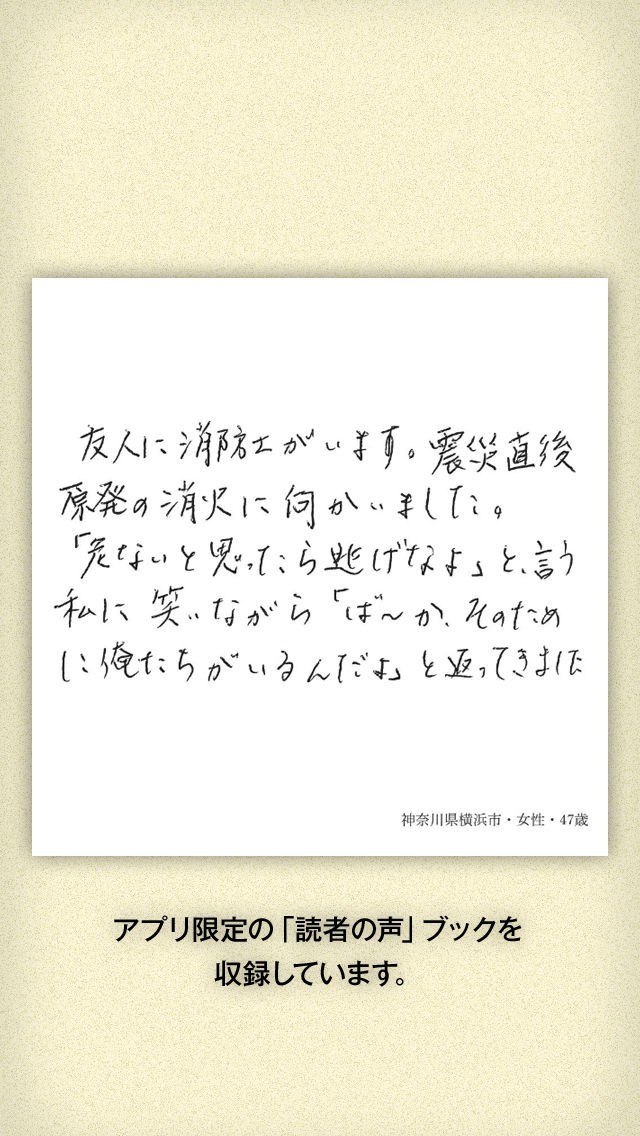 友人に消防士がいます。震災直後
原発の消火に向かいました。
「危ないと思ったら逃げなよ」と、言う
私に笑いながら「ば〜か、そのため
に俺たちがいるんだよ」と返ってきました
神奈川県横浜市・女性・47歳
アプリ限定の「読者の声」ブックを
収録しています。